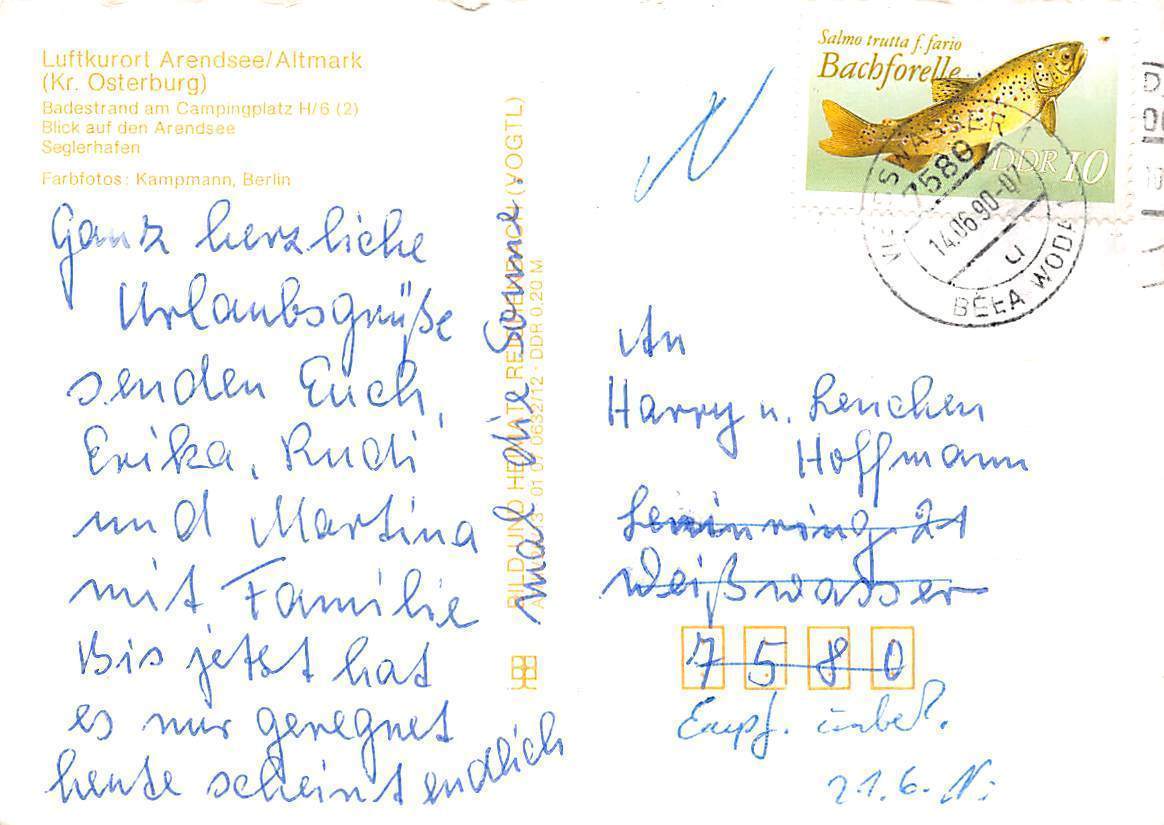 Luftkurort Arendsee/Altmark
(Kr. Osterburg)
Badestrand am Campingplatz H/6 (2)
Blick auf den Arendsee
Seglerhafen
Farbfotos: Kampmann, Berlin
Ganz herzliche
Urlaubsgrüße
senden Euch,
Erika, Rudi
und Martina
mit Familie
Bis jetzt hat
es nur geregnet
heute scheint endlich
mal die Sonne.
BILD UND HEIMAT REICHENBACH (VOGTL)
01 07 0632/12 · DDR 0,20 M
Salmo trutta f. fario
Bachforelle
DDR 10
7580
14.06.90-07
BĚŁA WODA
An
Harry u. Lenchen
Hoffmann
Leninring 21
Weißwasser
7580
Empf. unbek.
21.6.